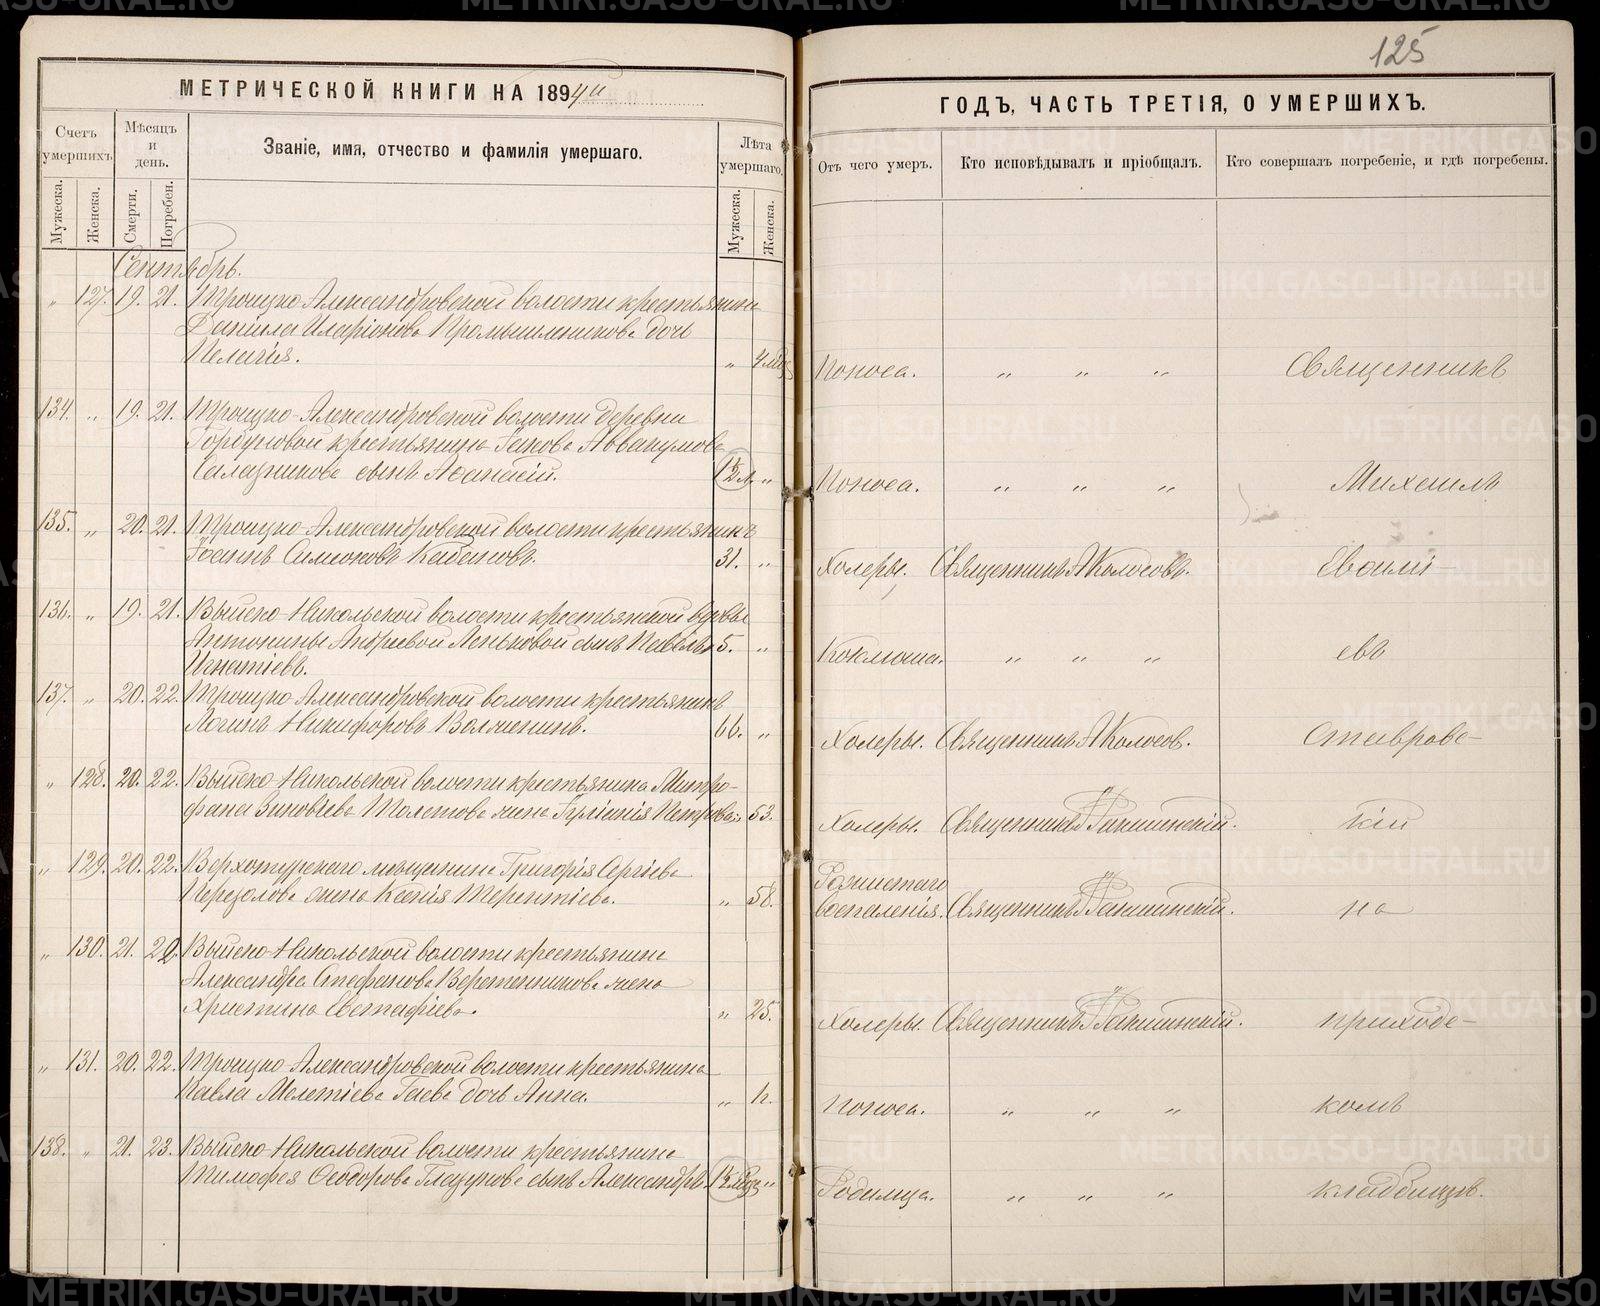 125
МЕТРИЧЕСКОЙ КНИГИ НА 1894й
ГОДЪ, ЧАСТЬ ТРЕТІЯ, О УМЕРШИХЪ.
Счетъ умершихъ.
Мужеска.
Женска.
Мѣсяцъ и день.
Смерти.
Погребен.
Званіе, имя, отчество и фамилія умершаго.
Лѣта умершаго.
Мужеска.
Женска.
Отъ чего умеръ.
Кто исповѣдывалъ и пріобщалъ.
Кто совершалъ погребеніе, и гдѣ погребены.
Сентябрь.
„ 127. 19. 21. Троицко Александровской волости крестьянина
Даніила Иларіонова Промышленникова дочь
Пелагія. „ 4 мѣс. Поноса. „ „ „ Священникъ
134. „ 19. 21. Троицко-Александровской волости деревни
Горбуновой крестьянина Іакова Аввакумова
Салазникова сынъ Аѳанасій. 1½ л. „ Поноса. „ „ „ Михаилъ
135. „ 20. 21. Троицко-Александровской волости крестьянинъ
Іоаннъ Симеоновъ Кабановъ. 31. „ Холеры. Священникъ А Колосовъ. Евлампі-
136. „ 19. 21. Выйско-Никольской волости крестьянской вдовы
Антонины Андреевой Леньковой сынъ Павелъ 5. „ Коклюша. „ „ „ евъ
Игнатіевъ.
137. „ 20. 22. Троицко Александровской волости крестьянинъ
Логинъ Никифоровъ 66. „ Холеры. Священникъ А Колосов. Ставров-
„ 128. 20. 22. Выйско-Никольской волости крестьянина Митро-
фана Зиновіева Толстова жена Іуліанія Петрова. 53. Холеры. Священникъ кій
„ 129. 20. 22. Верхотурскаго мѣщанина Григорія Сергіева
жена Ксенія Терентіева. „ 58. Рожистаго
воспаленія. Священникъ на
„ 130. 21. 22. Выйско-Никольской волости крестьянина
Александра Стефанова Веретенникова жена
Христина Евстафіева. „ 25. Холеры. Священникъ приходс-
„ 131. 20. 22. Троицко Александровской волости крестьянина
Павла Мелетіева Гаева дочь Анна. „ Поноса. „ „ „ комъ
138. „ 21. 23. Выйско-Никольской волости крестьянина
Тимофея Ѳеодорова Глазунова сынъ Александръ. 1½ мѣс. „ Родимца. „ „ „ кладбищѣ.
METRIKI.GASO-URAL.RU